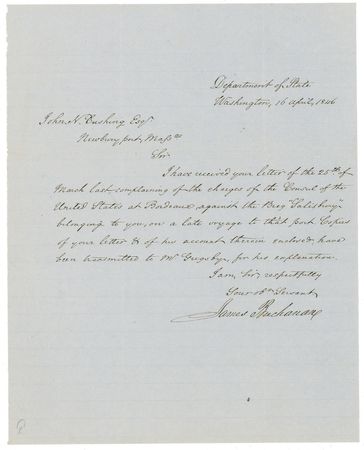 Department of State
Washington, 16 April, 1846
John N. Cushing Esqr
Newburyport, Masstts
Sir.
I have received your letter of the 25th of
March last complaining of the charges of the Consul of the
United States at Bordeaux against the Brig "Salisbury"
belonging to you, on a late voyage to that port Copies
of your letter & of his account therein enclosed, have
been transmitted to Mr for his explanation.
I am, Sir, respectfully
Your obt Servant,
James Buchanan